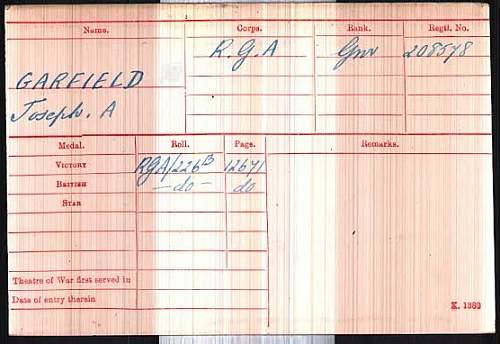 Name. Corps. Rank. Regtl. No.
GARFIELD R.G.A Gnr 208578
Joseph. A
Medal. Roll. Page. Remarks.
VICTORY RGA/226B 12671
BRITISH —do— do
STAR
Theatre of War first served in
Date of entry therein
K. 1380